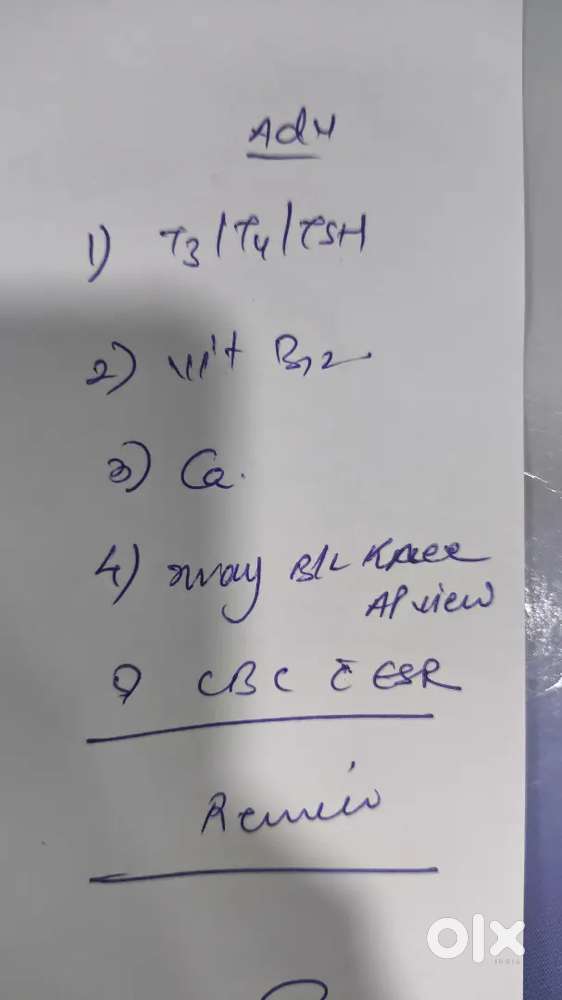 Adv
1) T3/T4/TSH
2) Vit B12
3) Ca.
4) xray B/L Knee
AP view
5) CBC c̄ ESR
Review
olx
INDIA